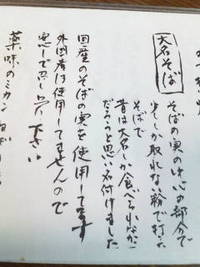 大名そば
そばの実の中心の部分で
少ししか取れない粉で打った
そばで
昔は大名しか食べられなかった
だろうと思い名付けました
国産のそばの実を使用してます
外国産は使用してませんので
安心して召し上り下さい
薬味のミカン